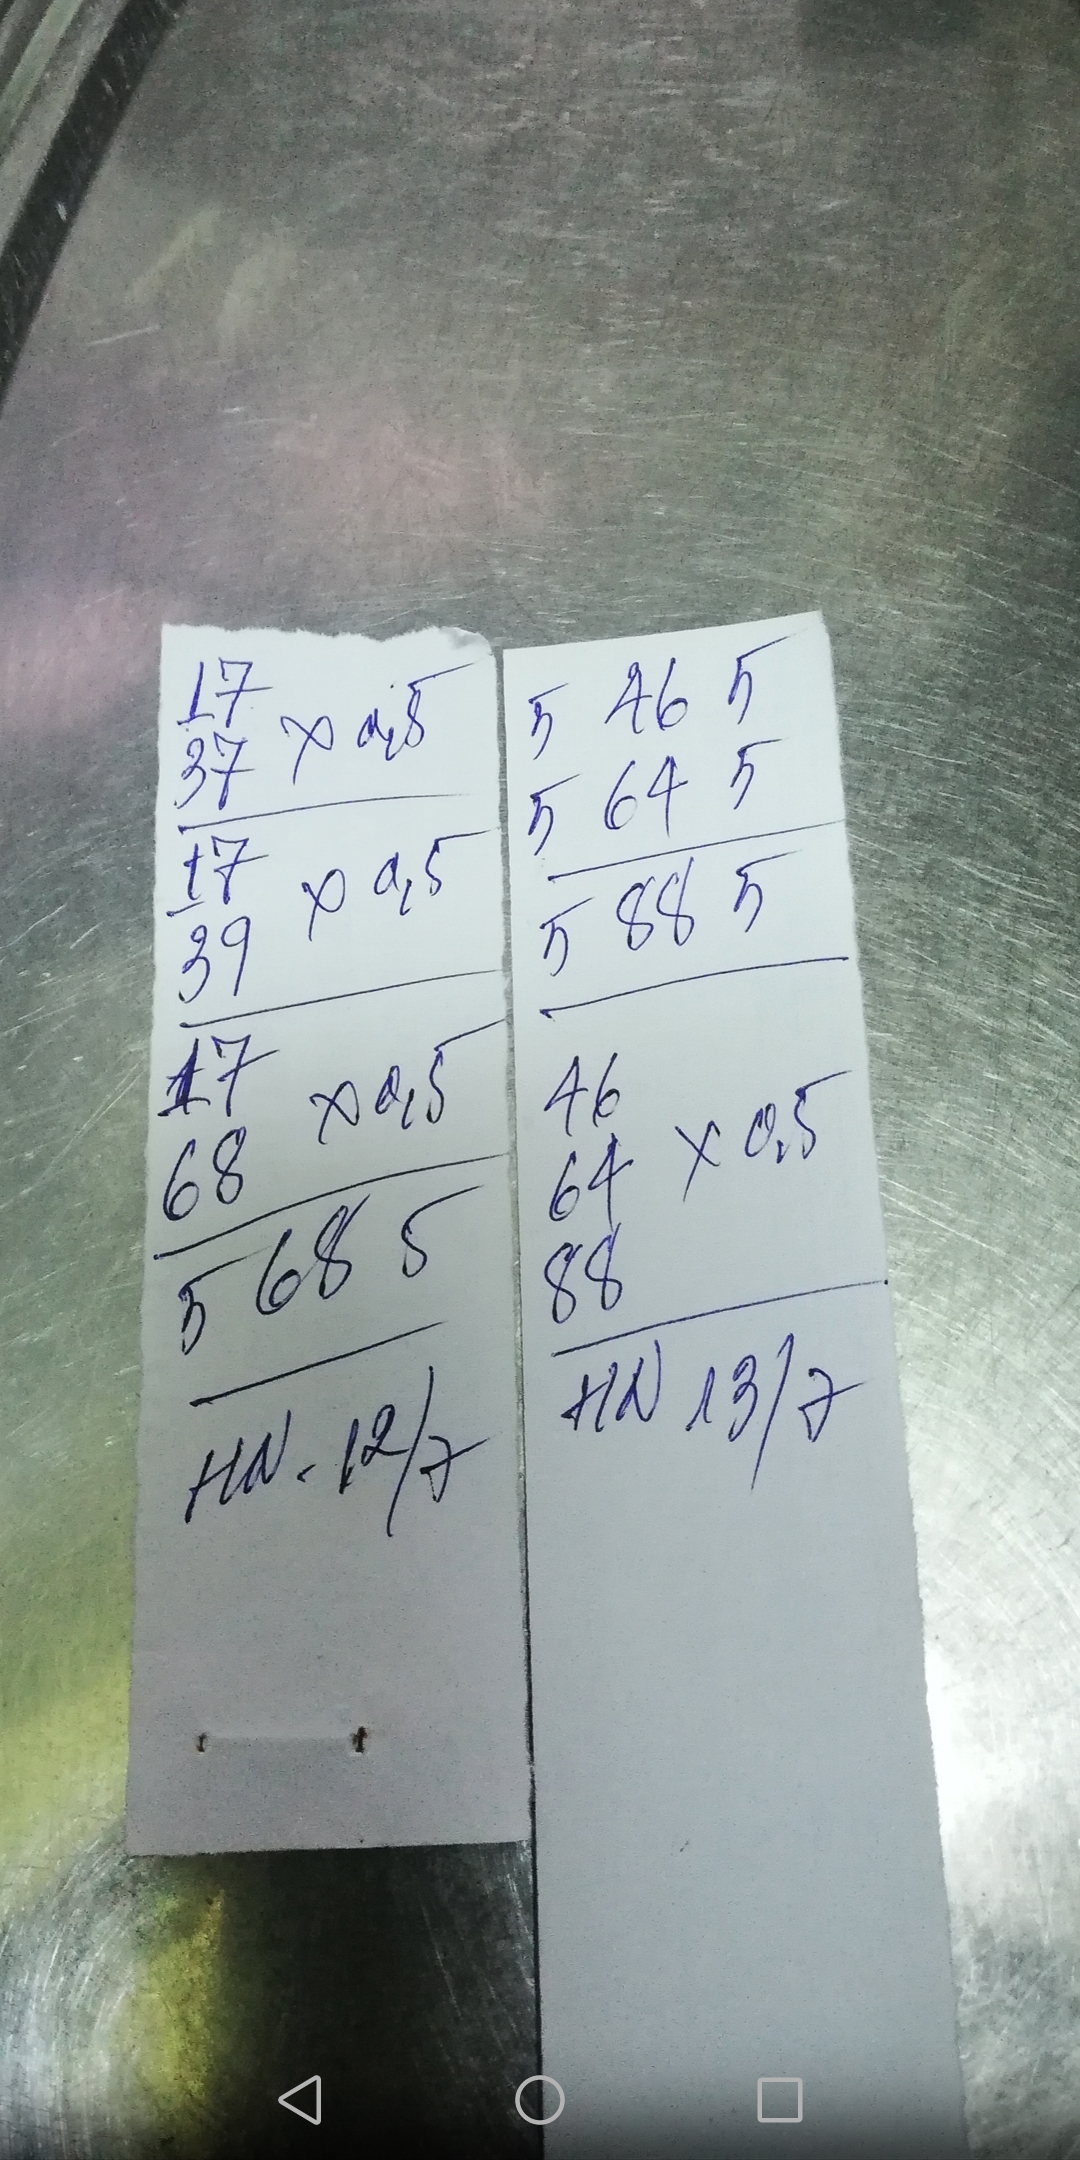 17
37 x 0,5
17
39 x 0,5
17
68 x 0,5
5 68 5
HN. 12/7
5 46 5
5 64 5
5 88 5
46
64 x 0,5
88
HN 13/7